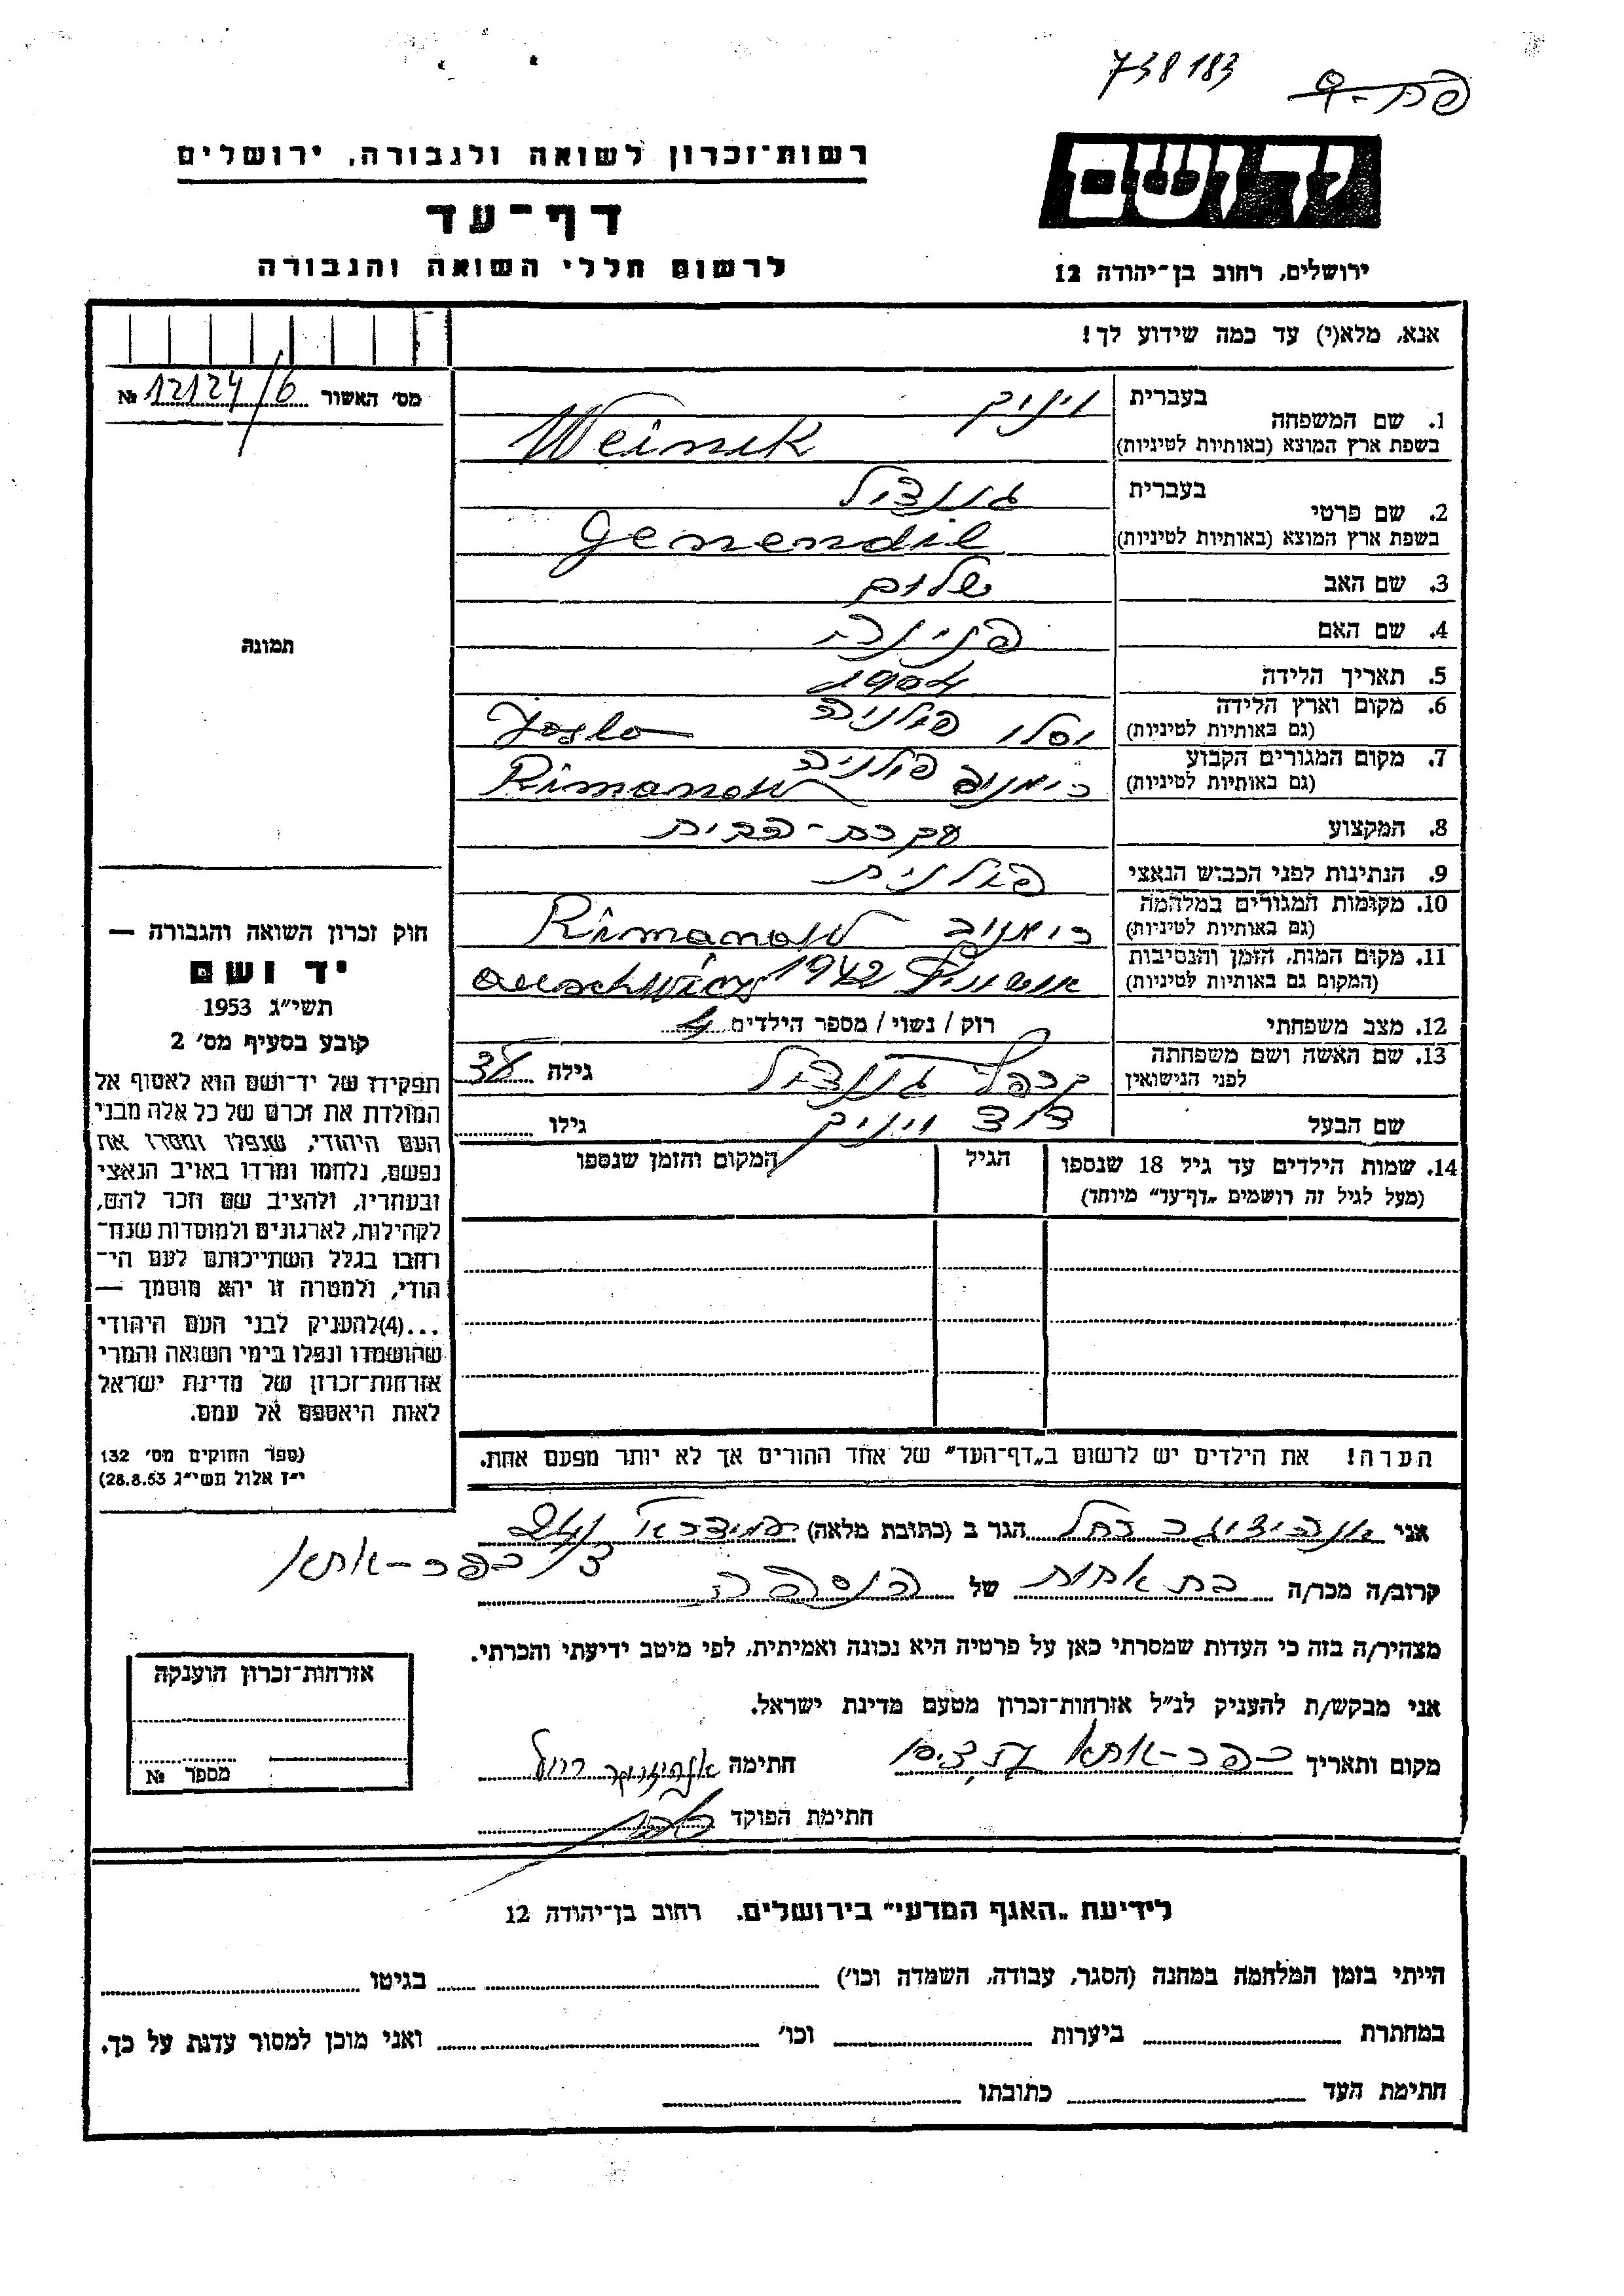 738183
רשות־זכרון לשואה ולגבורה, ירושלים
יד ושם
דף־עד
לרשום חללי השואה והגבורה
ירושלים, רחוב בן־יהודה 12
אנא, מלא(י) עד כמה שידוע לך!
מס׳ האשור 12124/6 №
1. שם המשפחה
בעברית ויניק
בשפת ארץ המוצא (באותיות לטיניות) Weinik
2. שם פרטי
בעברית גננדיל
בשפת ארץ המוצא (באותיות לטיניות) Genendil
3. שם האב שלום
4. שם האם פנינה
5. תאריך הלידה 1904
6. מקום וארץ הלידה יסלו פולניה Jaslo
(גם באותיות לטיניות)
7. מקום המגורים הקבוע רימנוב פולניה Rimanow
(גם באותיות לטיניות)
8. המקצוע עקרת־הבית
9. הנתינות לפני הכבוש הנאצי פולנית
10. מקומות המגורים במלחמה רימנוב Rimanow
(גם באותיות לטיניות)
11. מקום המות, הזמן והנסיבות 1942
(המקום גם באותיות לטיניות)
12. מצב משפחתי רוק / נשוי / מספר הילדים 4
13. שם האשה ושם משפחתה
לפני הנישואין גננדיל גילה 38
שם הבעל דוד ויניק גילו
14. שמות הילדים עד גיל 18 שנספו
(מעל לגיל זה רושמים „דף־עד״ מיוחד)
הגיל
המקום והזמן שנספו
הערה! את הילדים יש לרשום ב„דף־העד״ של אחד ההורים אך לא יותר מפעם אחת.
תמונה
חוק זכרון השואה והגבורה —
יד ושם
תשי״ג 1953
קובע בסעיף מס׳ 2
תפקידו של יד־ושם הוא לאסוף אל
המולדת את זכרם של כל אלה מבני
העם היהודי, שנפלו ומסרו את
נפשם, נלחמו ומרדו באויב הנאצי
ובעוזריו, ולהציב שם וזכר להם,
לקהילות, לארגונים ולמוסדות שנח־
רחבו בגלל השתייכותם לעם הי־
הודי, ולמטרה זו יהא מוסמך —
...(4)להעניק לבני העם היהודי
שהושמדו ונפלו בימי השואה והמרי
אזרחות־זכרון של מדינת ישראל
לאות היאספם אל עמם.
(ספר החוקים מס׳ 132
י״ז אלול תשי״ג 28.8.53)
אני רחל הגר ב (כתובת מלאה)
כפר-אתא
קרוב/ה מכר/ה בת אחות של הנספה
מצהיר/ה בזה כי העדות שמסרתי כאן על פרטיה היא נכונה ואמיתית, לפי מיטב ידיעתי והכרתי.
אני מבקש/ת להעניק לנ״ל אזרחות־זכרון מטעם מדינת ישראל.
מקום ותאריך כפר-אתא חתימה רחל
חתימת הפוקד
אזרחות־זכרון הוענקה
מספר №
לידיעת „האגף המדעי״ בירושלים. רחוב בן־יהודה 12
הייתי בזמן המלחמה במחנה (הסגר, עבודה, השמדה וכו׳) בגיטו
במחתרת ביערות וכו׳ ואני מוכן למסור עדות על כך.
חתימת העד כתובתו